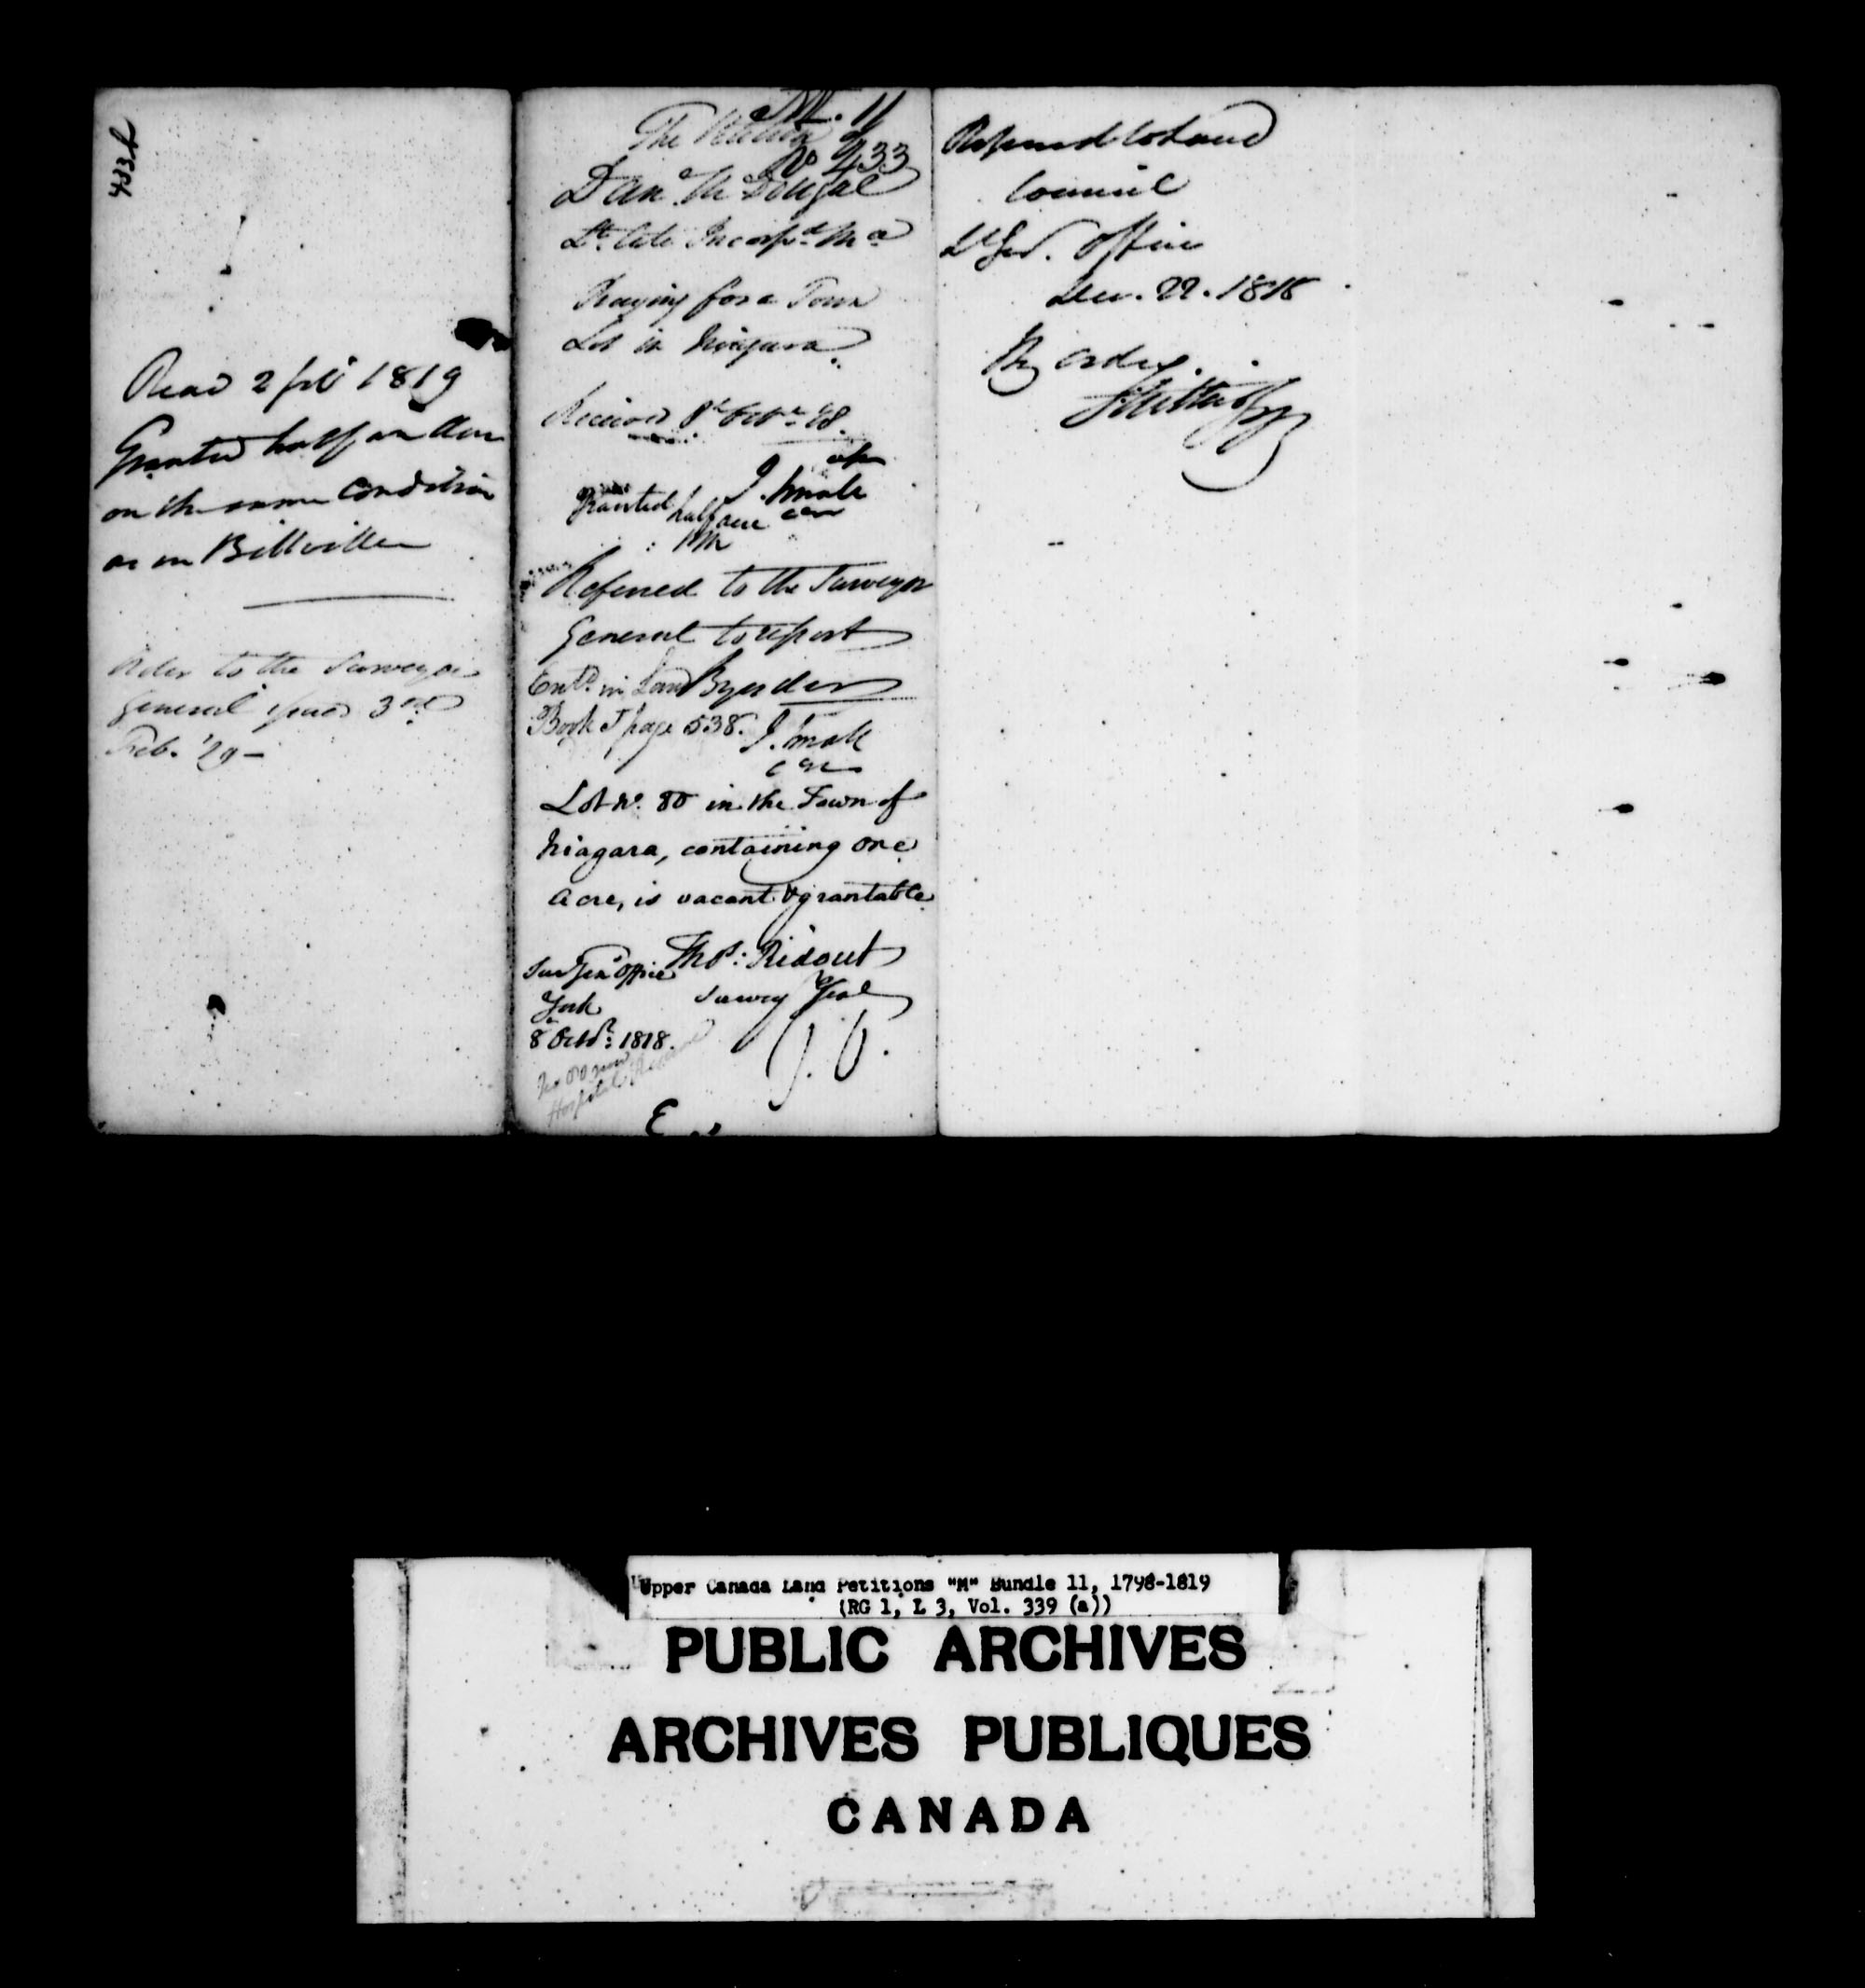 433b
Read 2 feb 1819
Granted half an Acre
on the same Condition
as in Bellville
Order to the Surveyor
General issued 3rd
Feb. '19 -
M. 11
The Petition of
No 433
Dan. McDougal
Lt. late Incorpd. Ma
Praying for a Town
Lot in Niagara.
Received 8th Octr. '18.
J. Small
Granted half acre
Referred to the Surveyor
General to report
Entd. in Land
By order
Book J page 538.
J. Small
Lot No. 80 in the Town of
Niagara, containing one
Acre, is vacant & grantable
Thos: Ridout
Sur Gen Office
York
Survey Genl
8 Octbr: 1818.
No 80 now
Hospital Reserve
Referred to Land
Council
Lt Gov. Office
Dec. 22. 1818
By order
Upper Canada Land Petitions "M" Bundle 11, 1798-1819
(RG 1, L 3, Vol. 339 (a))
PUBLIC ARCHIVES
ARCHIVES PUBLIQUES
CANADA